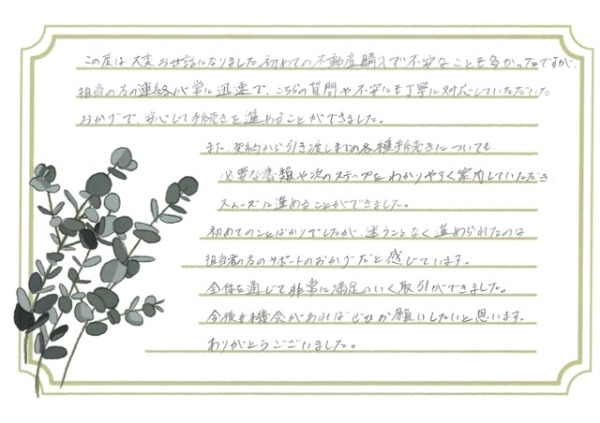 この度は大変お世話になりました。初めての不動産購入で不安なことも多かったですが、
担当の方の連絡が常に迅速で、こちらの質問や不安にも丁寧に対応していただいた
おかげで、安心して手続きを進めることができました。
また、契約から引き渡しまでの各種手続きについても
必要な書類や次のステップをわかりやすく案内していただき
スムーズに進めることができました。
初めてのことばかりでしたが、迷うことなく進められたのは
担当者の方のサポートのおかげだと感じています。
全体を通じて非常に満足のいく取引ができました。
今後も機会があればぜひお願いしたいと思います。
ありがとうございました。